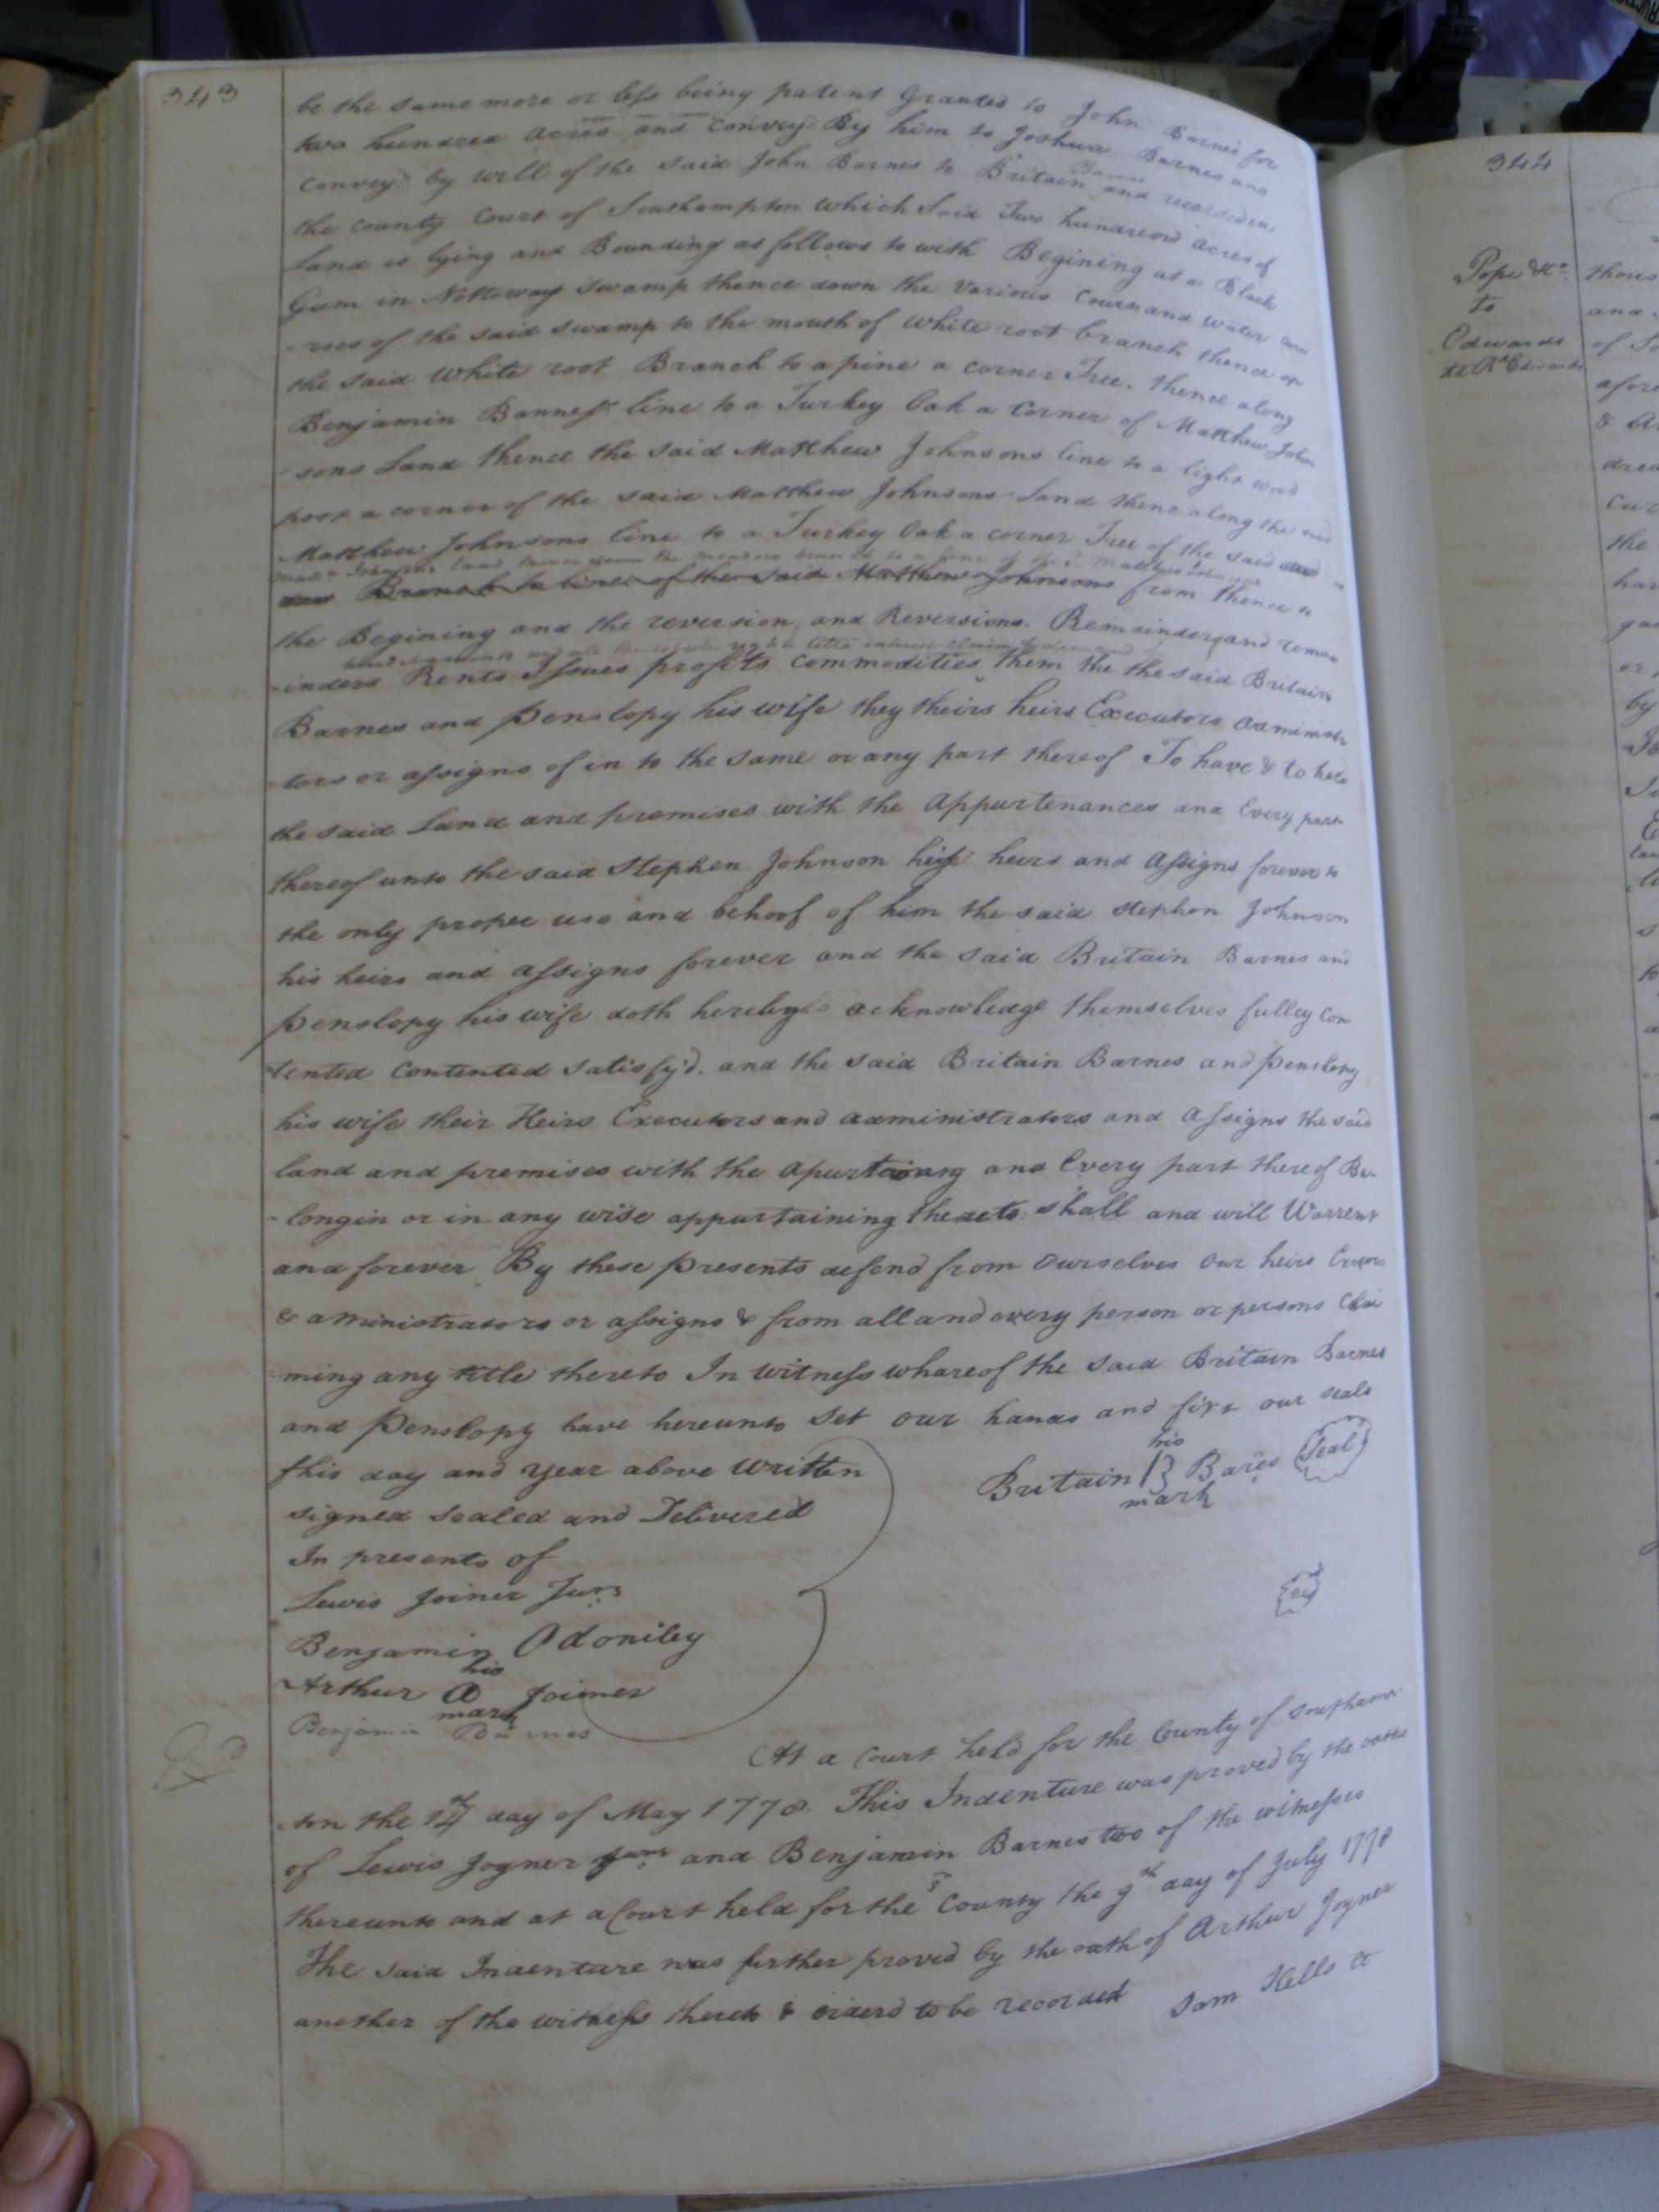 343
be the same more or less being patent Granted to John Barnes for
two hundred acres and convey'd By him to Joshua Barnes and
convey'd by will of the said John Barnes to Britain Barnes and recorded in
the county Court of Southampton which said Two hundred acres of
Land is lying and Bounding as follows to with Begining at a Black
Gum in Nottoway swamp thence down the various Course and water cou
-rses of the said swamp to the mouth of white root branch thence up
the said white root Branch to a pine a corner Tree. thence along
Benjamin Barness line to a Turkey Oak a Corner of Matthew John
-sons Land thence the said Matthew Johnsons line to a light wood
post a corner of the said Matthew Johnsons Land thence along the said
Matthew Johnsons line to a Turkey Oak a corner Tree of the said
Matt. Johnsons land thence down the meadow branch to a line of the sd. Matthew Johnsons
Branch to line of the said Matthew Johnsons from thence to
the Begining and the reversion, and Reversions. Remainder, and rema
hereditaments and all the estate right title interest claim & demand of
-inders Rents Issues profits commodities them the the said Britain
Barnes and Penslopy his wife they theirs heirs Executors administra
-tors or assigns of in to the same or any part thereof To have & to hold
the said Land and premises with the Appurtenances and Every part
thereof unto the said Stephen Johnson heirs and Assigns forever to
the only proper use and behoof of him the said Stephen Johnson
his heirs and assigns forever and the said Britain Barnes and
Penslopy his wife doth hereby acknowledge themselves fulley con
-tented contented satisfy'd. and the said Britain Barnes and Penslopy
his wife their Heirs Executors and administrators and Assigns the said
land and premises with the apurtainany and Every part thereof Be
-longin or in any wise appurtaining thereto shall and will Warrent
and forever By these presents defend from ourselves our heirs Exors
& aministrators or assigns & from all and every person or persons Clai
-ming any title thereto In witness whareof the said Britain Barnes
and Penslopy have hereunto set our hands and fixt our seals
this day and year above written
signed sealed and Delivered
In presents of
Britain his B mark Barnes (Seal)
Lewis Joiner Junr
(Seal)
Benjamin Odoniley
Arthur his A mark Joiner
Benjamin Barnes
At a Court held for the County of Southamp
-ton the 14th day of May 1778. This Indenture was proved by the oaths
of Lewis Joyner Junr and Benjamin Barnes two of the witnesses
thereunto and at a Court held for the sd County the 9th day of July 1778
The said Indenture was further proved by the oath of Arthur Joyner
another of the witness thereto & orderd to be recorded
Sam Kello Ct
344
Pope &c.
to
Edwards
thous
and
of So
afore
& A
drea
Cur
the